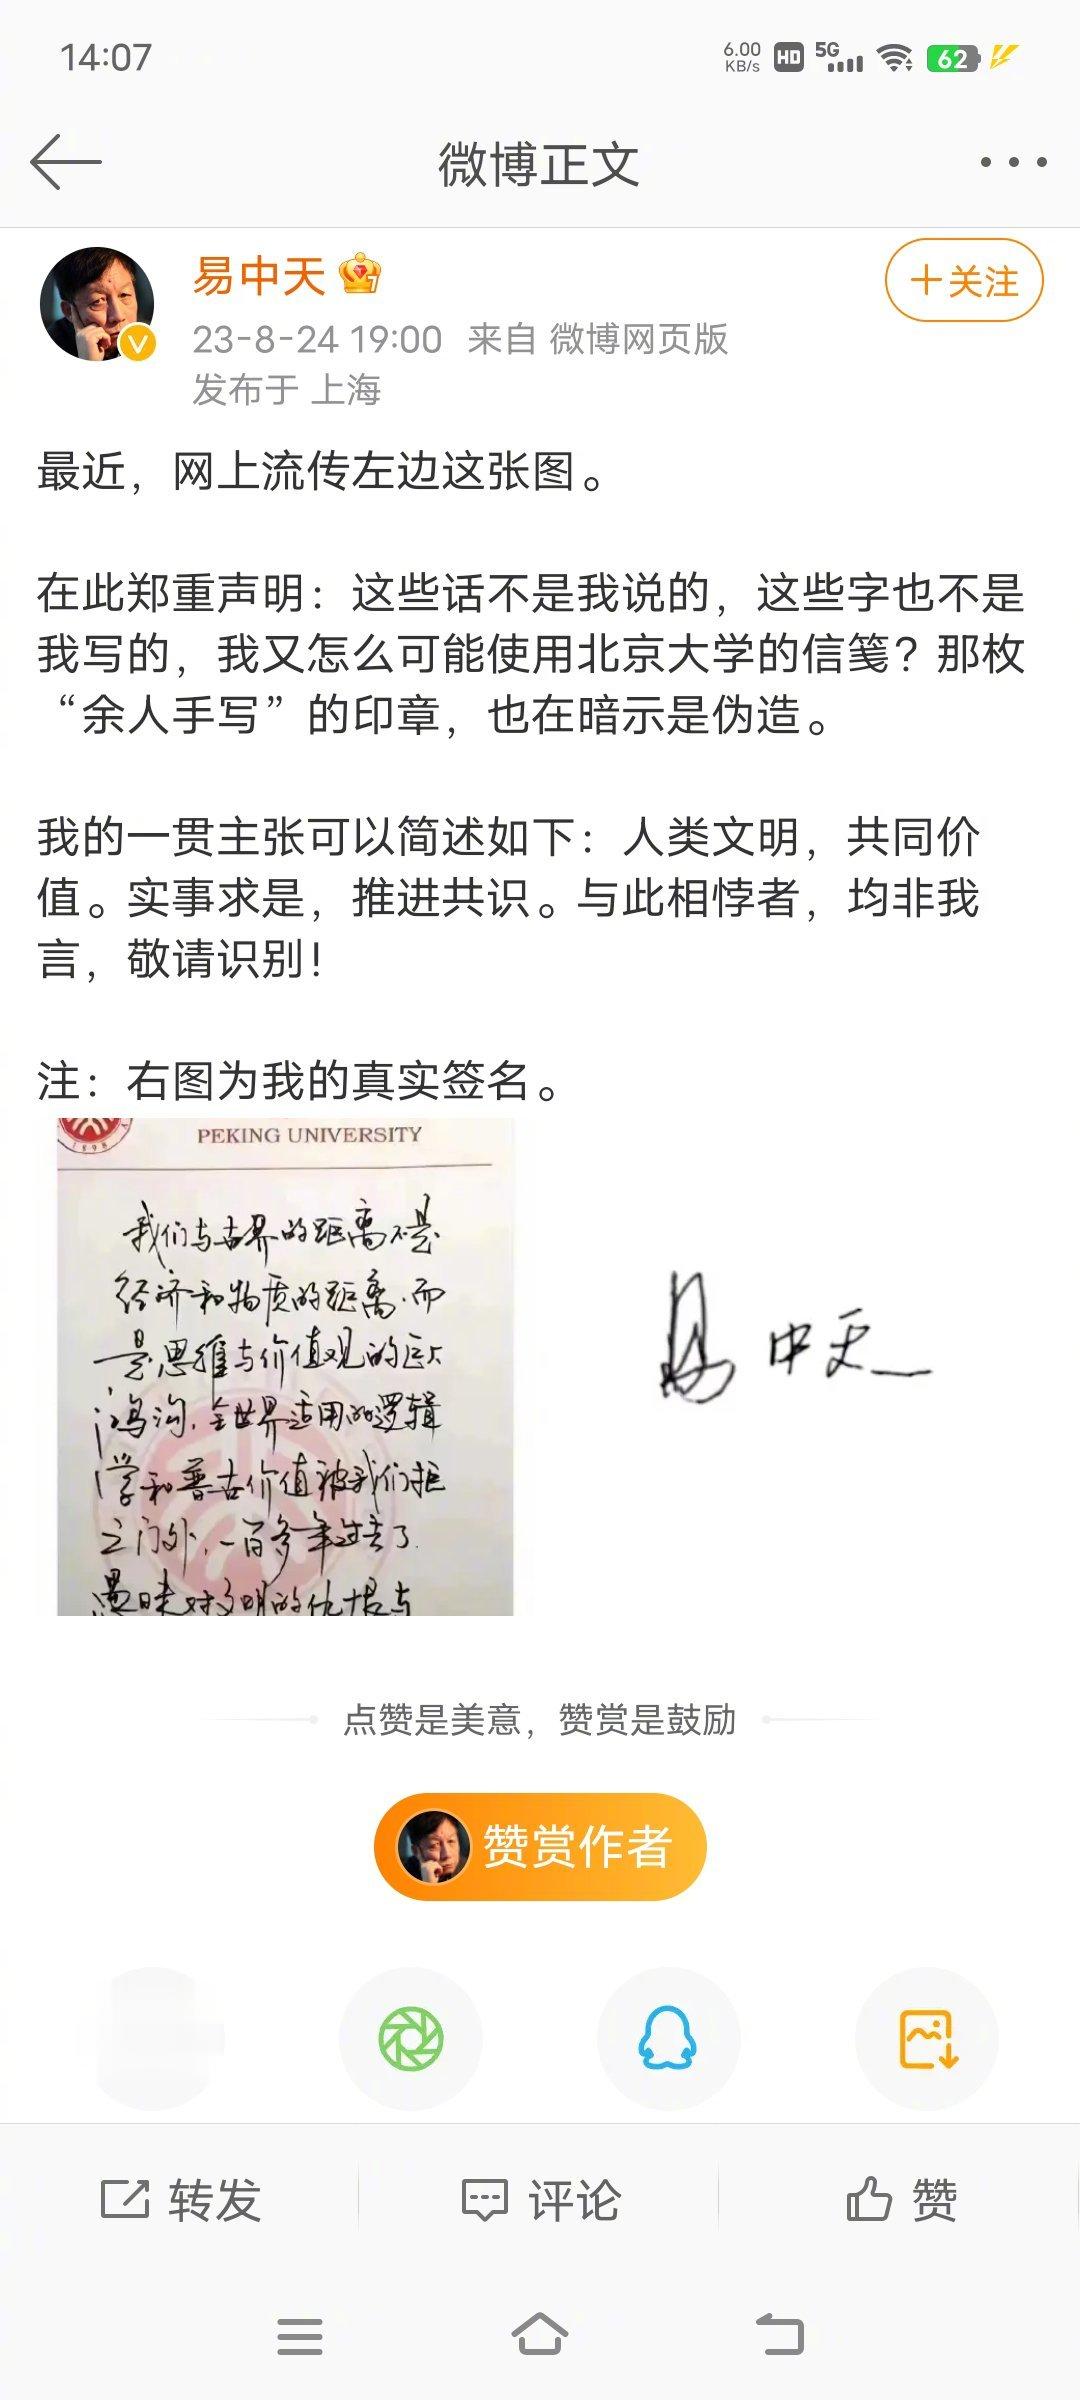 14:07
6.00
KB/s
HD
5G
62
微博正文
易中天
7
V
+关注
23-8-24 19:00 来自 微博网页版
发布于 上海
最近，网上流传左边这张图。
在此郑重声明：这些话不是我说的，这些字也不是
我写的，我又怎么可能使用北京大学的信笺？那枚
“余人手写”的印章，也在暗示是伪造。
我的一贯主张可以简述如下：人类文明，共同价
值。实事求是，推进共识。与此相悖者，均非我
言，敬请识别！
注：右图为我的真实签名。
1898
PEKING UNIVERSITY
我们与世界的距离不是
经济和物质的距离.而
是思维与价值观的巨大
鸿沟.全世界适用的逻辑
学和普世价值被我们拒
之门外.一百多年过去了.
愚昧对文明的仇恨与
易中天
点赞是美意，赞赏是鼓励
赞赏作者
转发
评论
赞